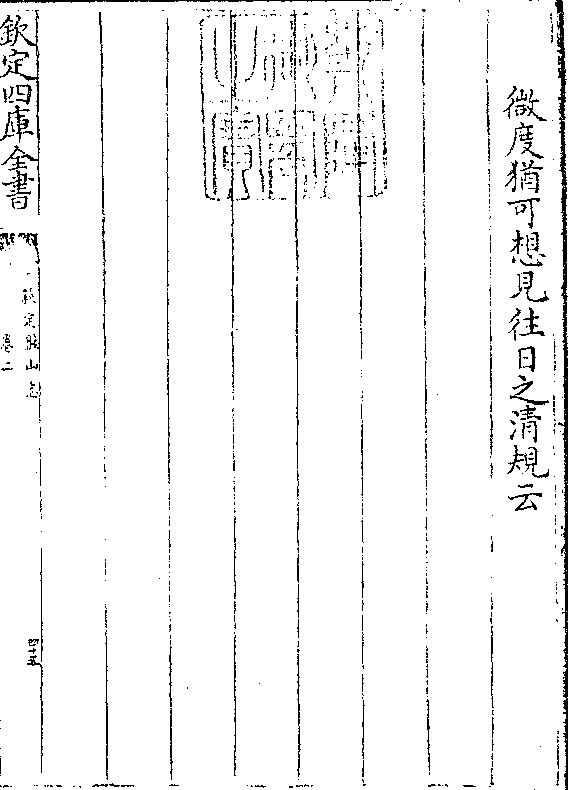 微度猶可想見往日之清規云
欽定四庫全書
欽定盤山志
卷二
四十五